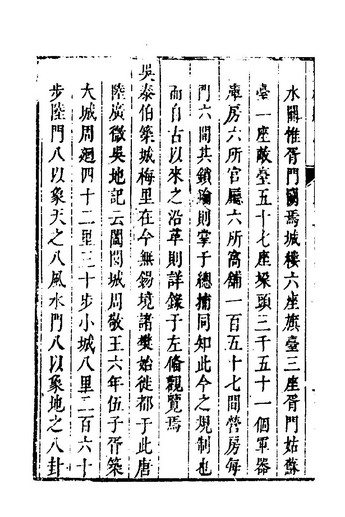 水關惟胥門闕焉城樓六座旗臺三座胥門姑蘇
臺一座敵臺五十七座垜頭三千五十一個軍器
庫房六所官廳六所窩舖一百五十七間營房每
門六間其鎖鑰則掌于總捕同知此今之規制也
而自古以來之沿革則詳錄于左偹觀覽焉
吳泰伯築城梅里在今無錫境諸樊始徙都于此唐
陸廣微吳地記云闔閭城周敬王六年伍子胥築
大城周迴四十二里三十步小城八里二百六十
步陸門八以象天之八風水門八以象地之八卦